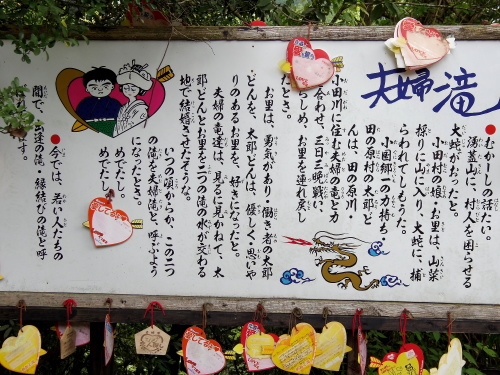 夫婦滝
●むかしの話たい。
涌蓋山に、村人を困らせる
大蛇がおったと。
小田村の娘、お里は、山菜
採りに山に入り、大蛇に、捕
らわれてしもうた。
小国郷一の力持ち
田の原村の太郎ど
んは、田の原川・
小田川に住む夫婦の竜と力
を合わせ、三日三晩戦い、
しめ、お里を連れ戻し
たとき。
お里は、勇気があり・働き者の太郎
どんを、太郎どんは、優しく思いや
りのあるお里を、好きになったと。
夫婦の竜達は、見るに見かねて、太
郎どんとお里を二つの滝の水が交わる
地で結婚させたそうな。
いつの頃からか、この二つ
の滝を夫婦滝と、呼ぶよう
になったとさ。
めでたし、
めでた
●今では、若い人たちの
間で、出逢の滝・縁結びの滝と呼
ます。